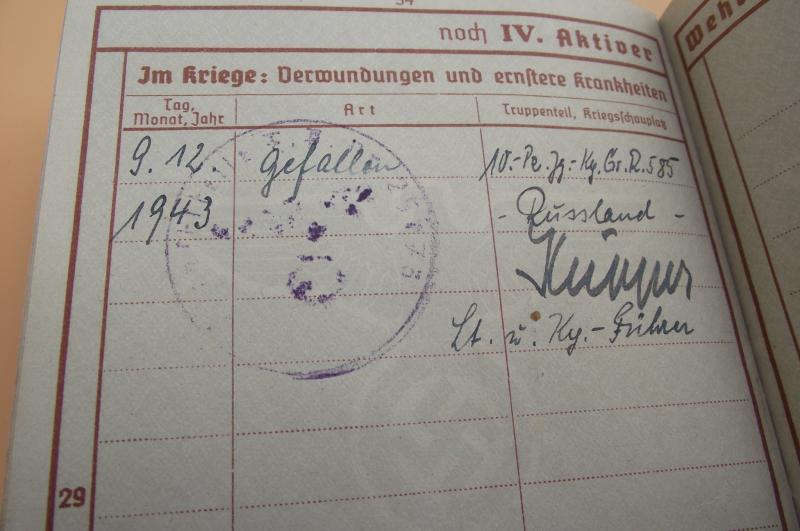 34
noch IV. Aktiver
Wehr
Im Kriege: Verwundungen und ernstere Krankheiten
Tag, Monat, Jahr
Art
Truppenteil, Kriegsschauplatz
9. 12. gefallen 10.-Pz. Jg.-Kp. Gr. R. 585
1943 - Russland -
Lt. u. Kp.-Führer
29